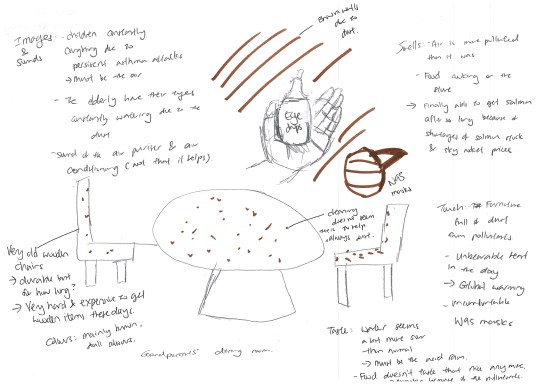 Images & Sounds
- children constantly
coughing due to
persistent asthma attacks
→ Must be the air
- The elderly have their eyes
constantly watering due to the
dust
- Sound of the air purifier & air
conditioning (not that it helps).
Brown walls
due to
dust.
Smells: - Air is more polluted
than it was
- Food cooking on the
stove
→ Finally able to get salmon
after so long because of
shortages of salmon stock
& sky rocket prices
Eye
drops
N95
masks
cleaning
does not seem
to help.
Always dust.
Very old wooden
chairs
→ durable but
for how long?
→ Very hard & expensive to get
wooden items these days.
Colours: mainly brown,
dull colours.
Grandparents' dining room.
Touch: Furniture
full of dust
from pollutants.
- Unbearable heat
in the day
→ Global warming
- uncomfortable
N95 masks
Taste: Water seems
a bit more sour
than normal
→ Must be the acid rain.
- Food doesn't taste that nice anymore,
because of the pollutants.